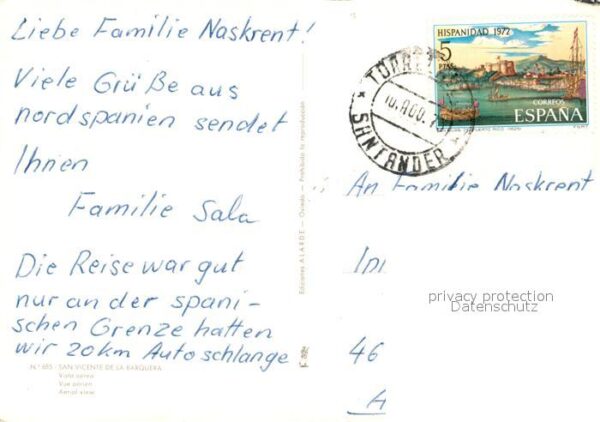 Liebe Familie Naskrent!
Viele Grüße aus
nordspanien sendet
Ihnen
Familie Sala
Die Reise war gut
nur an der spani-
schen Grenze hatten
wir 20km Autoschlange
N.º 685 - SAN VICENTE DE LA BARQUERA
Vista aérea
Vue aérien
Aerial view
Ediciones ALARDE - Oviedo - Prohibida la reproducción
HISPANIDAD 1972
5
PTAS
CORREOS
ESPAÑA
10. AGO. 7
SANTANDER
An Familie Naskrent
privacy protection
Datenschutz
46